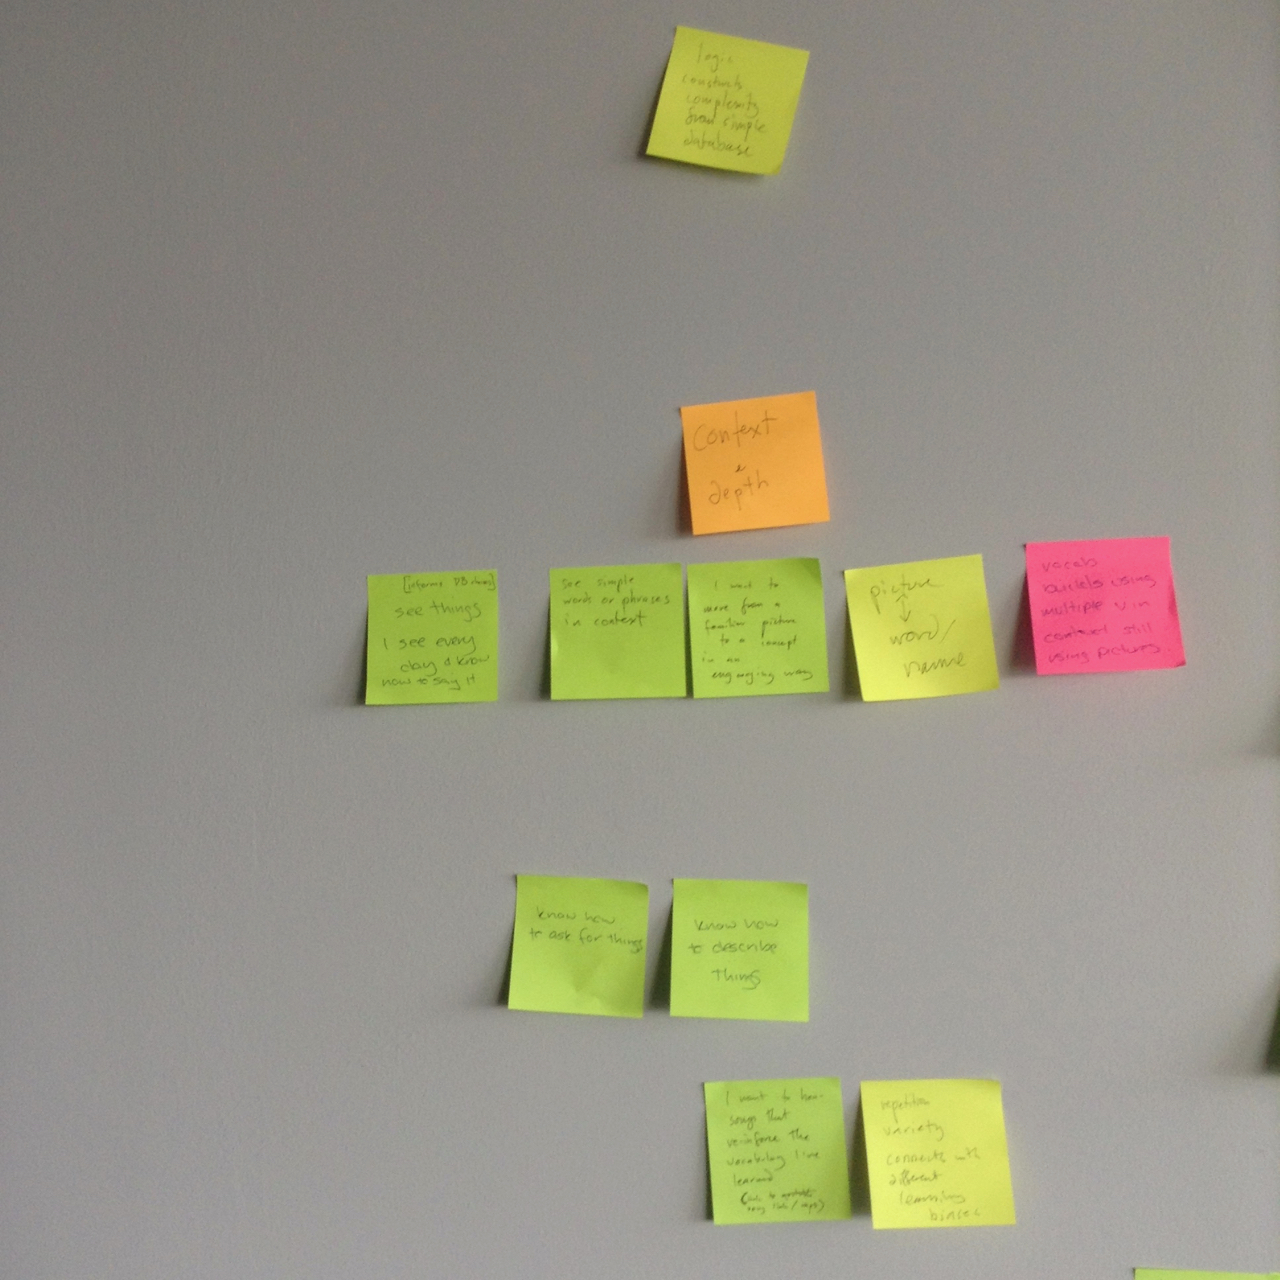 logic
constructs
complexity
from simple
database
Context
&
depth
[informs DB
see things
I see every
day & know
how to say it
see simple
words or phrases
in context
I want to
move from a
familiar picture
to a concept
in an
engaging way
picture
↕
word/
name
vocab
builds using
multiple v in
context still
using pictures.
know how
to ask for things
know how
to describe
things
I want to hear
songs that
re-inforce the
vocabulary I've
learned
repetition
variety
connects with
different
learning